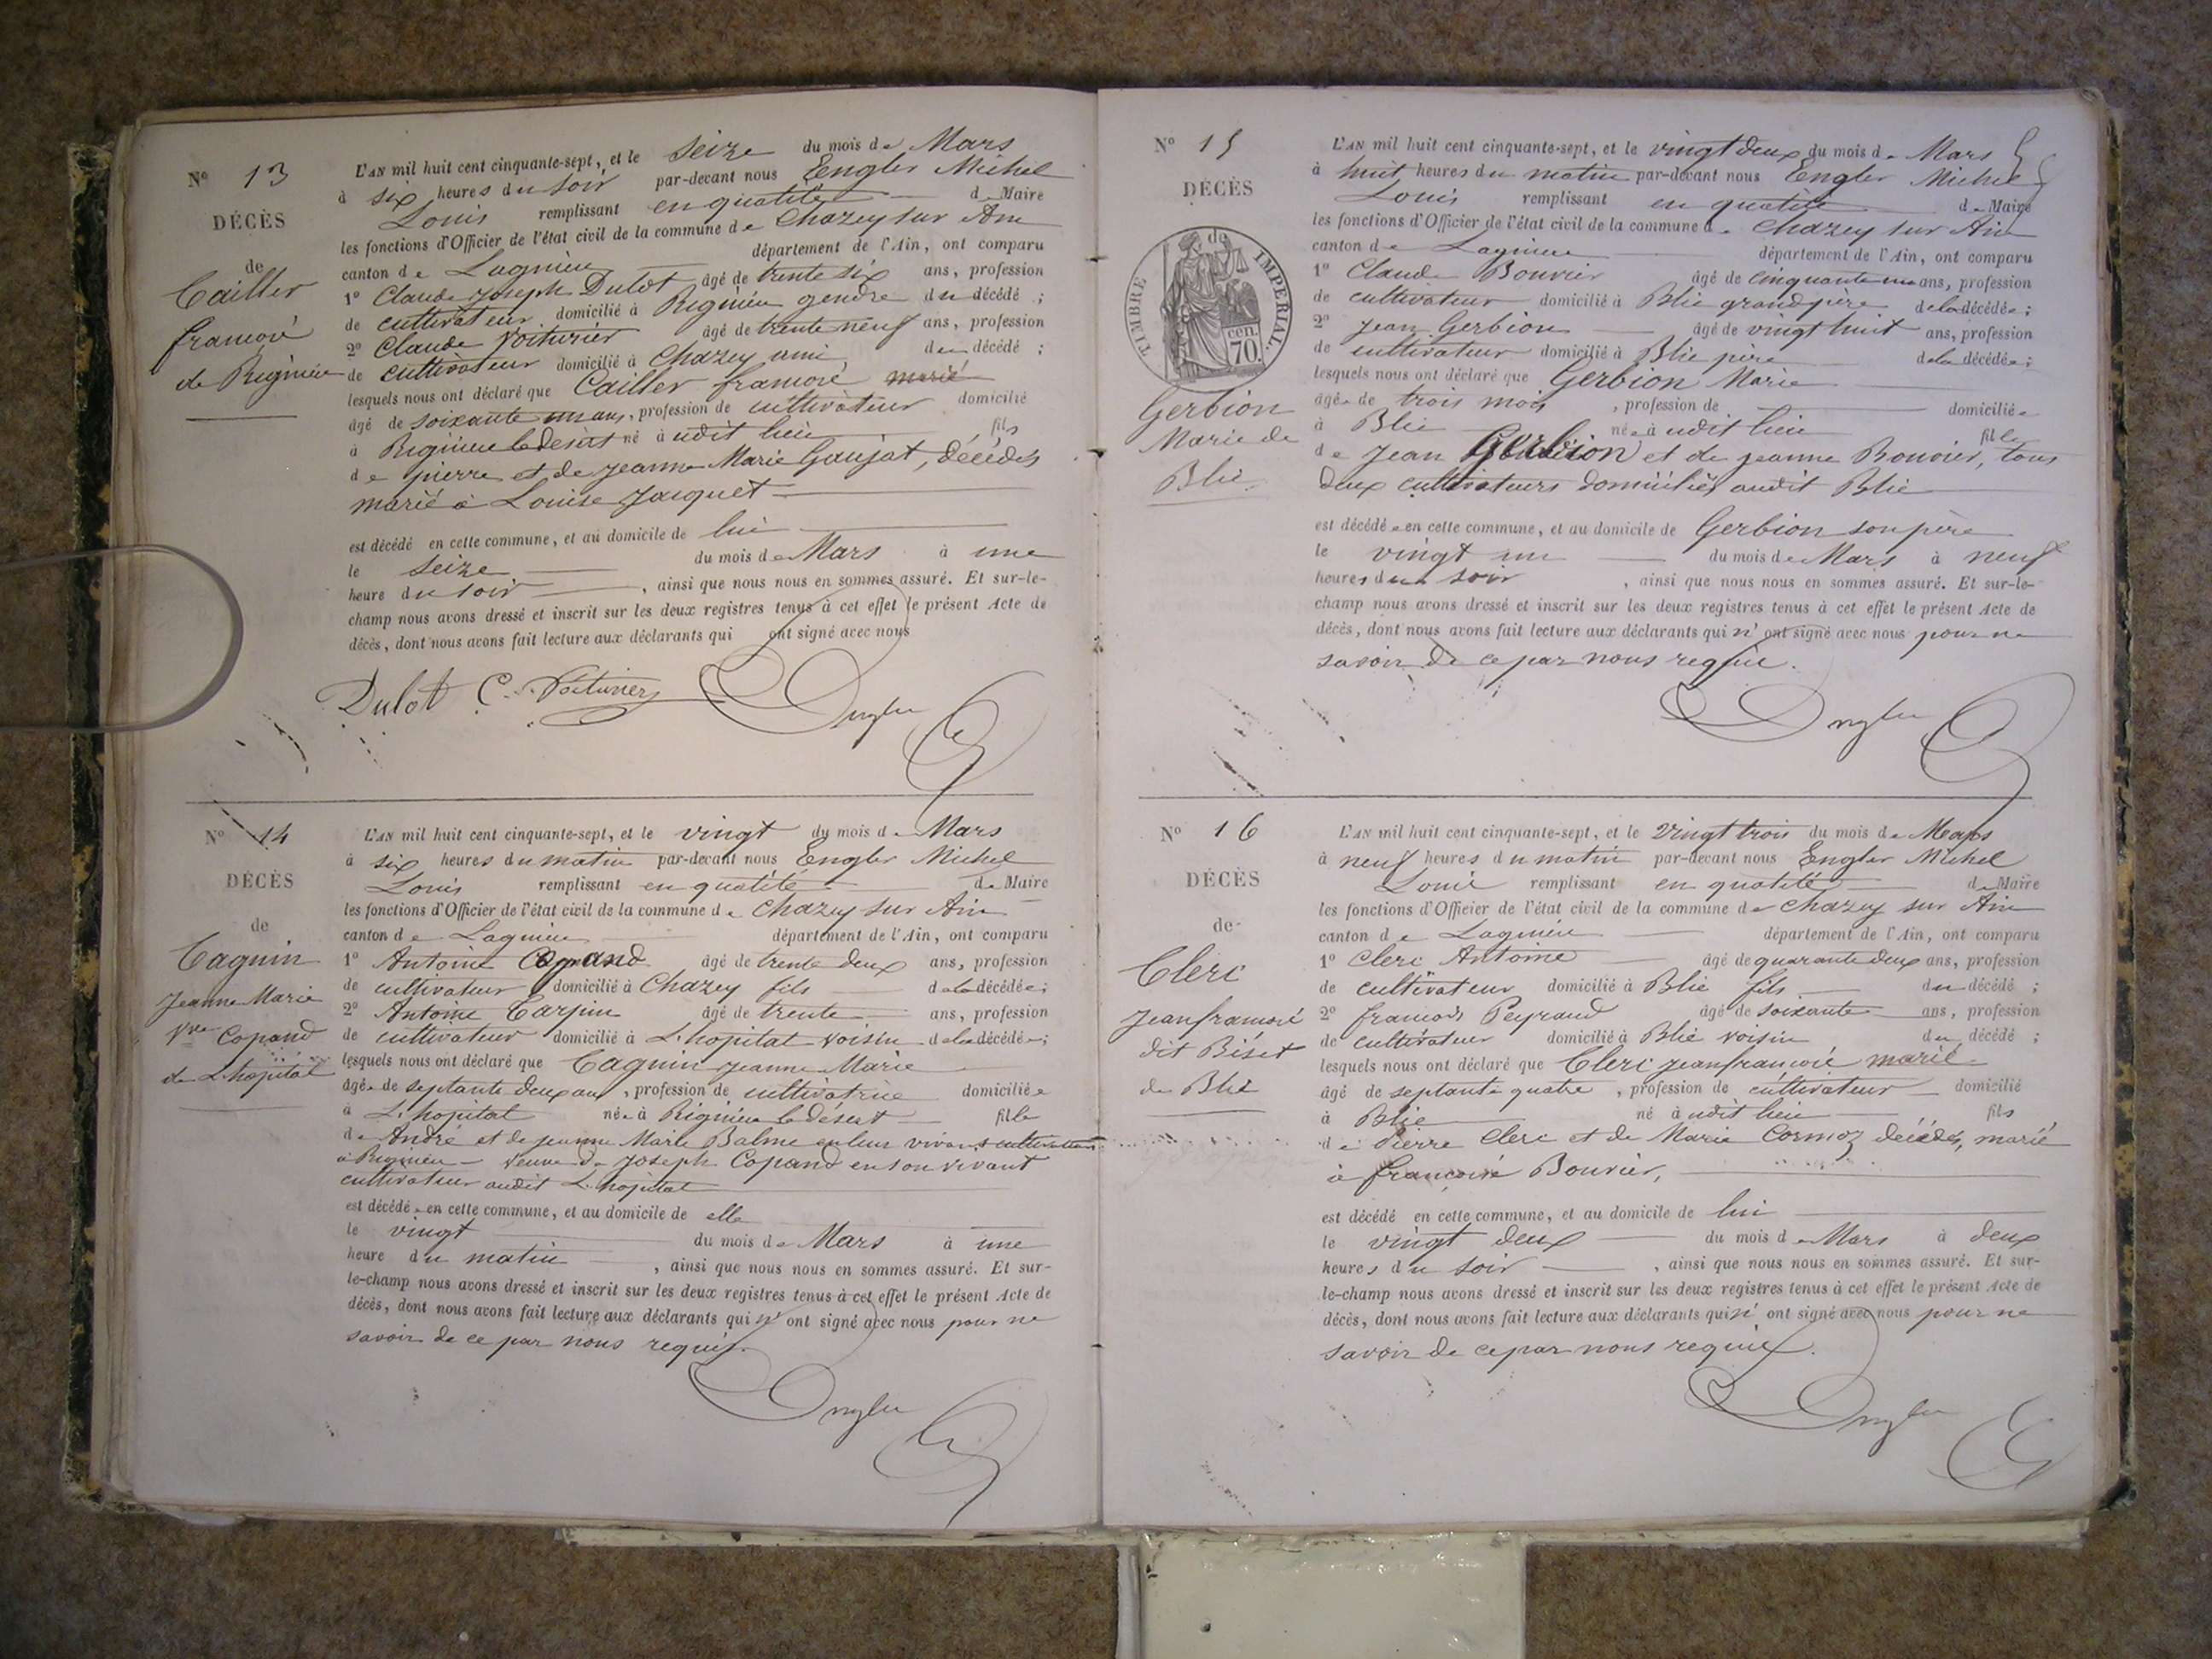 N° 13
DÉCÈS
de
Cailler
françois
de Rignieu
L'AN mil huit cent cinquante-sept, et le seize du mois de Mars
à six heures du soir par-devant nous Engler Michel
Louis remplissant en qualité de Maire
les fonctions d'Officier de l'état civil de la commune de Chazey sur Ain
canton de Lagnieu département de l'Ain, ont comparu
1° Claude Joseph Dulot âgé de trente six ans, profession
de cultivateur domicilié à Rignieu gendre du décédé ;
2° Claude Voiturier âgé de trente neuf ans, profession
de cultivateur domicilié à Chazey ami du décédé ;
lesquels nous ont déclaré que Cailler françois marié
âgé de soixante un ans, profession de cultivateur domicilié
à Rignieu le desert né à udit lieu fils
de pierre et de jeanne Marie Gaujat, décédés
marié à Louise Jacquet
est décédé en cette commune, et au domicile de lui
le seize du mois de Mars à une
heure du soir , ainsi que nous nous en sommes assuré. Et sur-le-
champ nous avons dressé et inscrit sur les deux registres tenus à cet effet le présent Acte de
décès, dont nous avons fait lecture aux déclarants qui ont signé avec nous
Dulot C. Voiturier Engler
N° 14
DÉCÈS
de
Caguin
Jeanne Marie
Vve Copand
de L'hopital
L'AN mil huit cent cinquante-sept, et le vingt du mois de Mars
à six heures du matin par-devant nous Engler Michel
Louis remplissant en qualité de Maire
les fonctions d'Officier de l'état civil de la commune de Chazey sur Ain
canton de Lagnieu département de l'Ain, ont comparu
1° Antoine Copand âgé de trente deux ans, profession
de cultivateur domicilié à Chazey fils de la décédée ;
2° Antoine Tarjin âgé de trente ans, profession
de cultivateur domicilié à L'hopital voisin de la décédée ;
lesquels nous ont déclaré que Caguin Jeanne Marie
âgée de septante deux ans , profession de cultivatrice domiciliée
à L'hopital née à Rignieu le désert fille
de André et de jeanne Marie Balme en leur vivant cultivateurs
à Rignieu veuve de Joseph Copand en son vivant
cultivateur audit L'hopital
est décédée en cette commune, et au domicile de elle
le vingt du mois de Mars à une
heure du matin , ainsi que nous nous en sommes assuré. Et sur-
le-champ nous avons dressé et inscrit sur les deux registres tenus à cet effet le présent Acte de
décès, dont nous avons fait lecture aux déclarants qui n' ont signé avec nous pour ne
savoir de ce par nous requis.
Engler
N° 15
DÉCÈS
de
TIMBRE IMPERIAL.
cen.
70.
Gerbion
Marie de
Blie
L'AN mil huit cent cinquante-sept, et le vingt deux du mois de Mars
à huit heures du matin par-devant nous Engler Michel
Louis remplissant en qualité de Maire
les fonctions d'Officier de l'état civil de la commune de Chazey sur Ain
canton de Lagnieu département de l'Ain, ont comparu
1° Claude Bouvier âgé de cinquante un ans, profession
de cultivateur domicilié à Blie grand père de la décédée ;
2° Jean Gerbion âgé de vingt huit ans, profession
de cultivateur domicilié à Blie père de la décédée ;
lesquels nous ont déclaré que Gerbion Marie
âgée de trois mois , profession de domiciliée
à Blie née à udit lieu fille
de Jean Gerbion et de jeanne Bouvier, tous
deux cultivateurs domiciliés audit Blie
est décédée en cette commune, et au domicile de Gerbion son père
le vingt un du mois de Mars à neuf
heures du soir , ainsi que nous nous en sommes assuré. Et sur-le-
champ nous avons dressé et inscrit sur les deux registres tenus à cet effet le présent Acte de
décès, dont nous avons fait lecture aux déclarants qui n' ont signé avec nous pour ne
savoir de ce par nous requis.
Engler
N° 16
DÉCÈS
de
Clerc
Jean françois
dit Biset
de Blie
L'AN mil huit cent cinquante-sept, et le vingt trois du mois de Mars
à neuf heures du matin par-devant nous Engler Michel
Louis remplissant en qualité de Maire
les fonctions d'Officier de l'état civil de la commune de Chazey sur Ain
canton de Lagnieu département de l'Ain, ont comparu
1° Clerc Antoine âgé de quarante deux ans, profession
de cultivateur domicilié à Blie fils du décédé ;
2° françois Peyraud âgé de soixante ans, profession
de cultivateur domicilié à Blie voisin du décédé ;
lesquels nous ont déclaré que Clerc jean françois marié
âgé de septante quatre , profession de cultivateur domicilié
à Blie né à udit lieu fils
de Pierre Clerc et de Marie Cormoz décédés, marié
à françoise Bouvier,
est décédé en cette commune, et au domicile de lui
le vingt deux du mois de Mars à deux
heures du soir , ainsi que nous nous en sommes assuré. Et sur-
le-champ nous avons dressé et inscrit sur les deux registres tenus à cet effet le présent Acte de
décès, dont nous avons fait lecture aux déclarants qui n' ont signé avec nous pour ne
savoir de ce par nous requis.
Engler